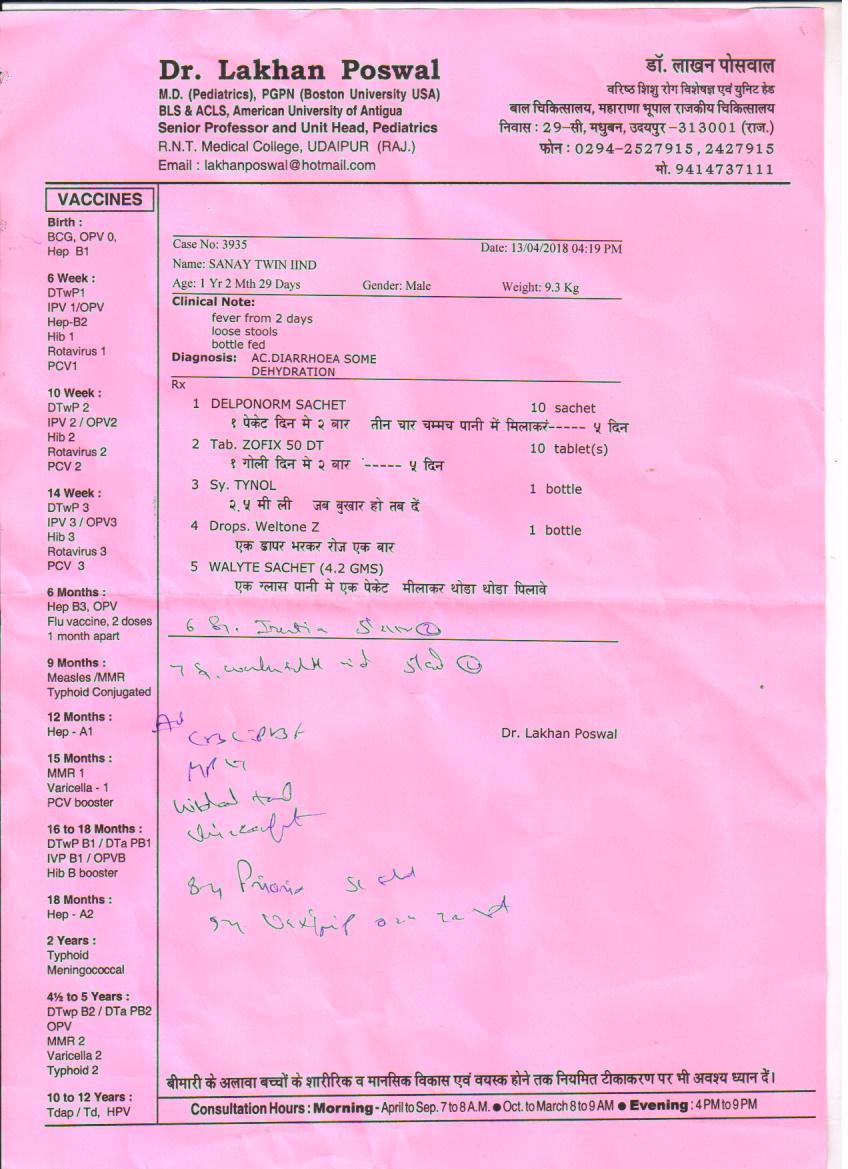 Dr. Lakhan Poswal
M.D. (Pediatrics), PGPN (Boston University USA)
BLS & ACLS, American University of Antigua
Senior Professor and Unit Head, Pediatrics
R.N.T. Medical College, UDAIPUR (RAJ.)
Email : lakhanposwal@hotmail.com
डॉ. लाखन पोसवाल
वरिष्ठ शिशु रोग विशेषज्ञ एवं युनिट हेड
बाल चिकित्सालय, महाराणा भूपाल राजकीय चिकित्सालय
निवास : 29-सी, मधुबन, उदयपुर -313001 (राज.)
फोन : 0294-2527915, 2427915
मो. 9414737111
VACCINES
Birth :
BCG, OPV 0,
Hep B1
6 Week :
DTwP1
IPV 1/OPV
Hep-B2
Hib 1
Rotavirus 1
PCV1
10 Week :
DTwP 2
IPV 2 / OPV2
Hib 2
Rotavirus 2
PCV 2
14 Week :
DTwP 3
IPV 3 / OPV3
Hib 3
Rotavirus 3
PCV 3
6 Months :
Hep B3, OPV
Flu vaccine, 2 doses
1 month apart
9 Months :
Measles /MMR
Typhoid Conjugated
12 Months :
Hep - A1
15 Months :
MMR 1
Varicella - 1
PCV booster
16 to 18 Months :
DTwP B1 / DTa PB1
IVP B1 / OPVB
Hib B booster
18 Months :
Hep - A2
2 Years :
Typhoid
Meningococcal
4½ to 5 Years :
DTwp B2 / DTa PB2
OPV
MMR 2
Varicella 2
Typhoid 2
10 to 12 Years :
Tdap / Td, HPV
Case No: 3935 Date: 13/04/2018 04:19 PM
Name: SANAY TWIN IIND
Age: 1 Yr 2 Mth 29 Days Gender: Male Weight: 9.3 Kg
Clinical Note:
fever from 2 days
loose stools
bottle fed
Diagnosis: AC.DIARRHOEA SOME
DEHYDRATION
Rx
1 DELPONORM SACHET 10 sachet
१ पेकेट दिन मे २ बार तीन चार चम्मच पानी में मिलाकर----- ५ दिन
2 Tab. ZOFIX 50 DT 10 tablet(s)
१ गोली दिन मे २ बार ----- ५ दिन
3 Sy. TYNOL 1 bottle
२.५ मी ली जब बुखार हो तब दें
4 Drops. Weltone Z 1 bottle
एक ड्रापर भरकर रोज एक बार
5 WALYTE SACHET (4.2 GMS)
एक ग्लास पानी मे एक पेकेट मीलाकर थोडा थोडा पिलावे
6
7
Dr. Lakhan Poswal
बीमारी के अलावा बच्चों के शारीरिक व मानसिक विकास एवं वयस्क होने तक नियमित टीकाकरण पर भी अवश्य ध्यान दें।
Consultation Hours : Morning - April to Sep. 7 to 8 A.M. ● Oct. to March 8 to 9 AM ● Evening : 4 PM to 9 PM